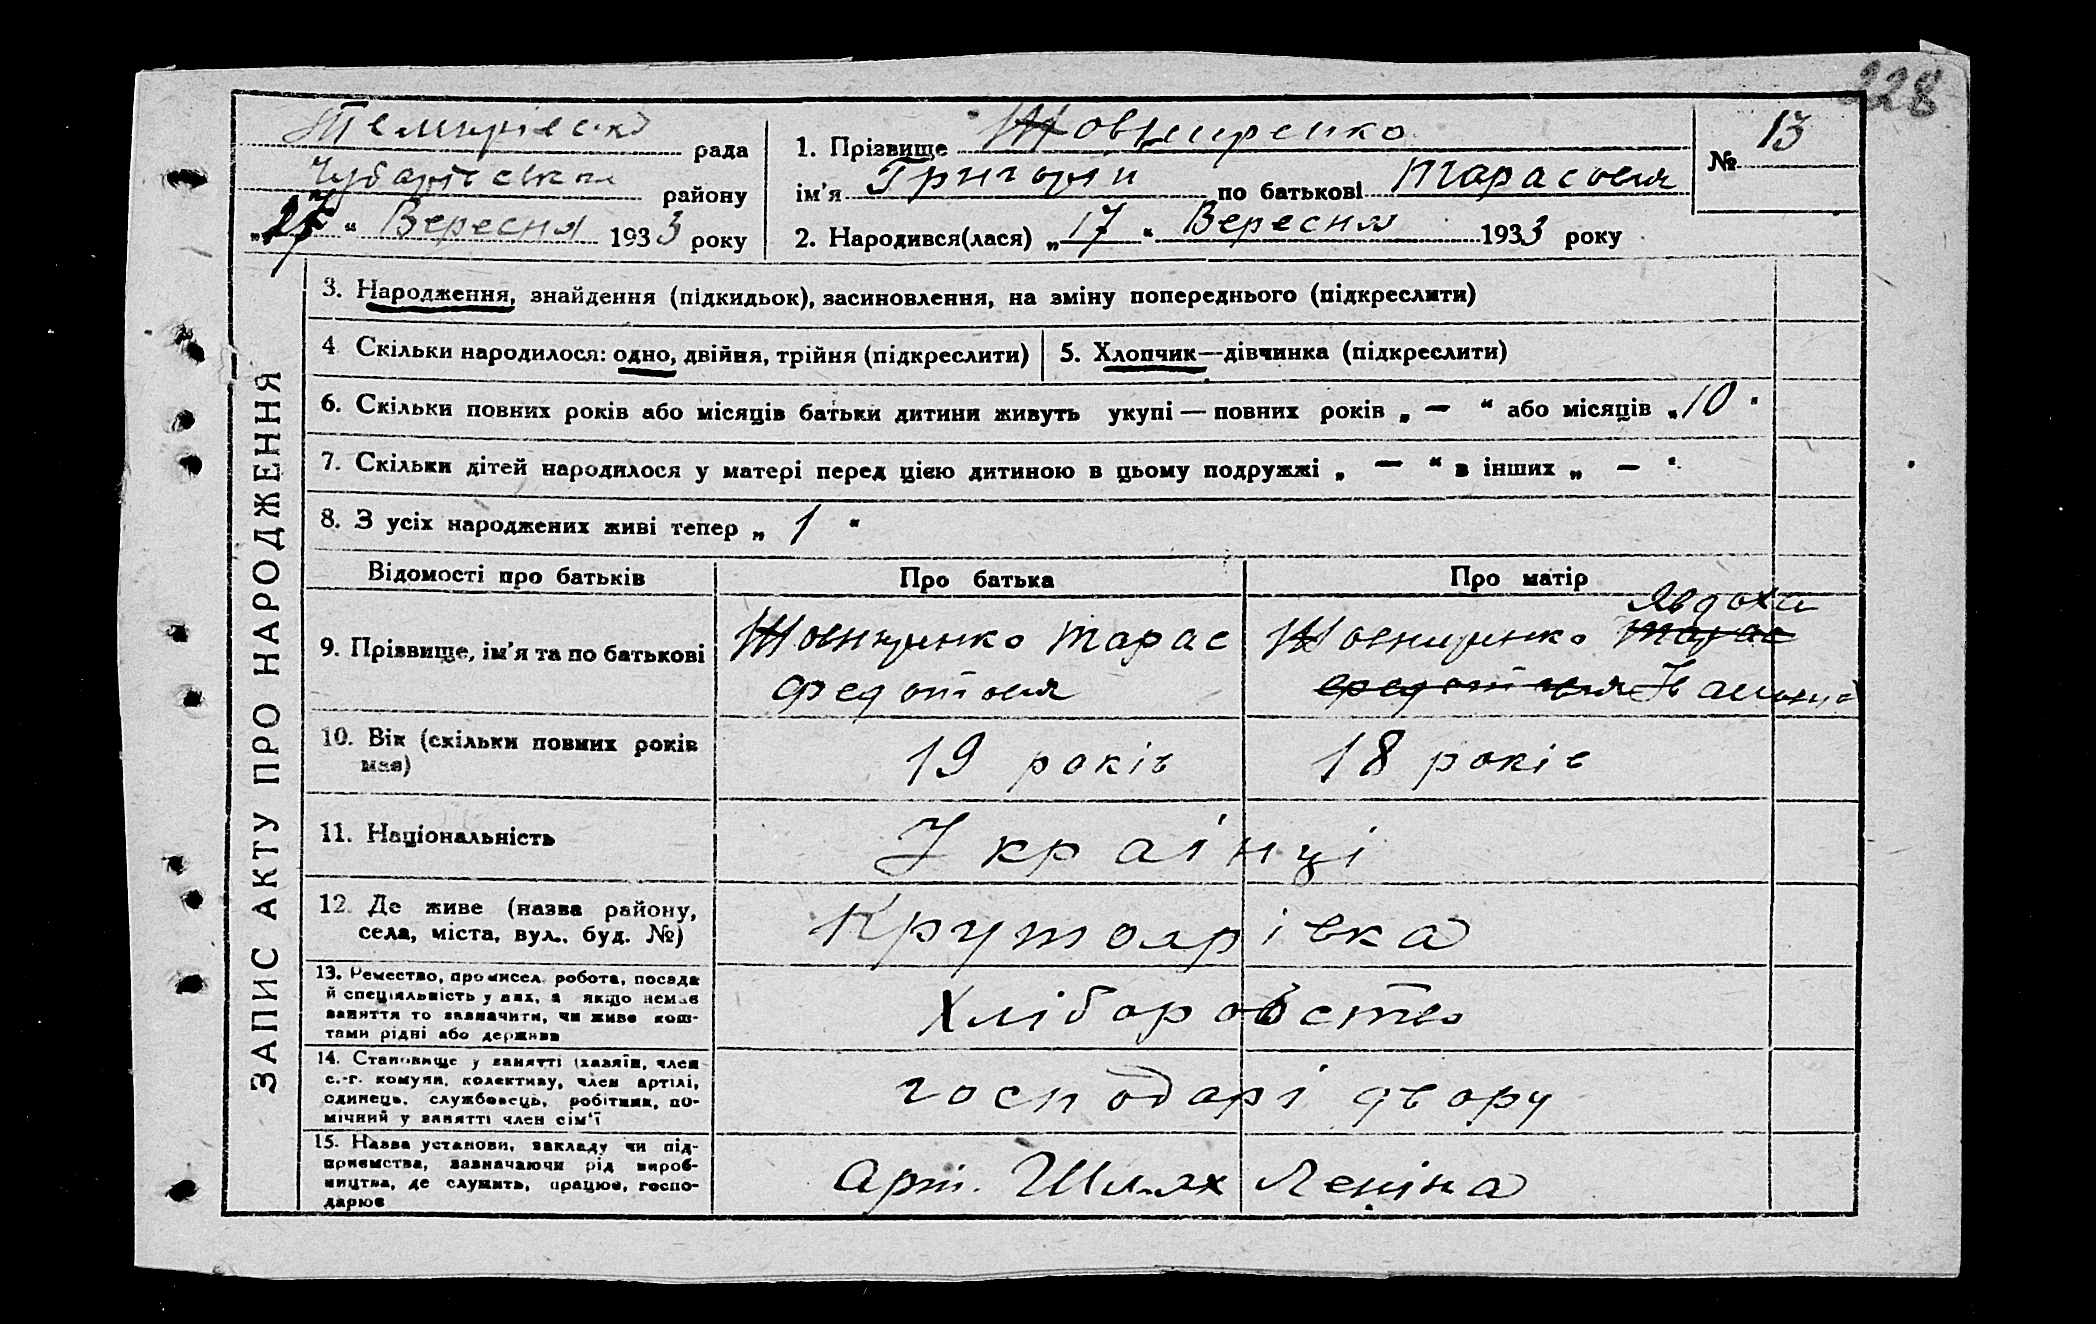 228
Темирівська рада
Чубарівського району
„27“ Вересня 1933 року
1. Прізвище Жовниренко
ім’я Григорій по батькові Тарасовия
2. Народився(лася) „17“ Вересня 1933 року
№ 13
ЗАПИС АКТУ ПРО НАРОДЖЕННЯ
3. Народження, знайдення (підкидьок), засиновлення, на зміну попереднього (підкреслити)
4. Скільки народилося: одно, двійня, трійня (підкреслити)
5. Хлопчик—дівчинка (підкреслити)
6. Скільки повних років або місяців батьки дитини живуть укупі — повних років „ — “ або місяців „10“
7. Скільки дітей народилося у матері перед цією дитиною в цьому подружжі „ — “ в інших „ — “
8. З усіх народжених живі тепер „ 1 “
Відомості про батьків
Про батька
Про матір
9. Прізвище, ім’я та по батькові
Жовниренко Тарас
Федотовия
Явдоха
Жовниренко Тарас
Федотовия
10. Вік (скільки повних років
має)
19 років
18 років
11. Національність
Українці
12. Де живе (назва району,
села, міста, вул., буд. №)
Крутоярівка
13. Ремество, промисел, робота, посада
й спеціяльність у них, а якщо немає
заняття то зазначити, чи живе кош-
тами рідні або держави
Хліборобство
14. Становище у занятті (хазяїн, член
с.-г. комуни, колективу, член артілі,
одинець, службовець, робітник, по-
мічний у занятті член сім’ї
господарі двору
15. Назва установи, закладу чи під-
приємства, зазначаючи рід вироб-
ництва, де служить, працює, госпо-
дарює
арт. Шлях Леніна